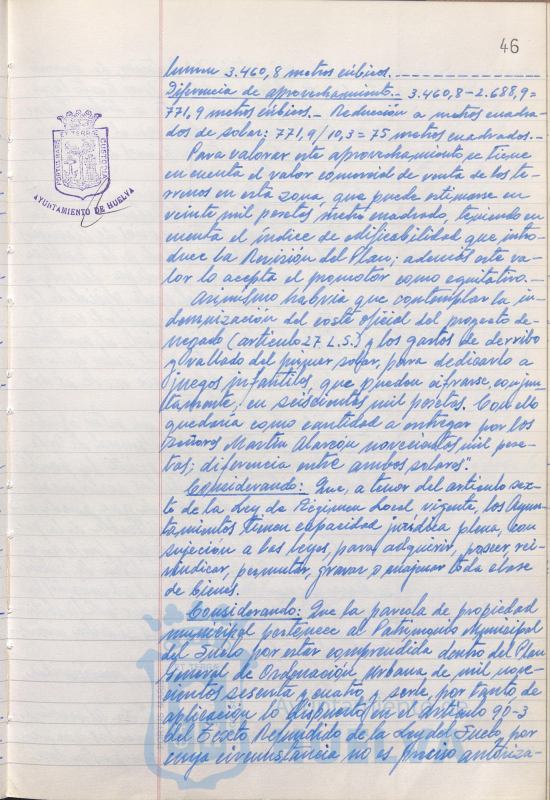 46
lumen 3.460,8 metros cúbicos.
Diferencia de aprovechamiento.- 3.460,8-2.688,9=
771,9 metros cúbicos.- Reducción a metros cuadra-
dos de solar: 771,9/10,3=75 metros cuadrados.-
Para valorar este aprovechamiento se tiene
en cuenta el valor comercial de venta de los te-
rrenos en esta zona, que puede estimarse en
veinte mil pesetas metro cuadrado, teniendo en
cuenta el índice de edificabilidad que intro-
duce la Revisión del Plan; además este va-
lor lo acepta el promotor como equitativo.-
Asimismo habría que contemplar la in-
demnización del coste oficial del proyecto de-
negado (artículo 27 L.S.) y los gastos de derribo
y vallado del primer solar, para dedicarlo a
juegos infantiles, que pueden cifrarse, conjun-
tamente, en seiscientas mil pesetas. Con ello
quedaría como cantidad a entregar por los
Señores Martín Alarcón novecientas mil pese-
tas; diferencia entre ambos solares".
Considerando: Que, a tenor del artículo sex-
to de la Ley de Régimen Local, vigente, los Ayun-
tamientos tienen capacidad jurídica plena, con
sujeción a las leyes, para adquirir, poseer, rei-
vindicar, permutar, gravar o enajenar toda clase
de bienes.
Considerando: Que la parcela de propiedad
municipal pertenece al Patrimonio Municipal
del Suelo por estar comprendida dentro del Plan
General de Ordenación Urbana de mil nove-
cientos sesenta y cuatro, y serle, por tanto de
aplicación lo dispuesto en el artículo 90-3
del Texto Refundido de la Ley del Suelo, por
cuya circunstancia no es preciso autoriza-
PORTUS MARIS
CUSTODIA
AYUNTAMIENTO DE HUELVA